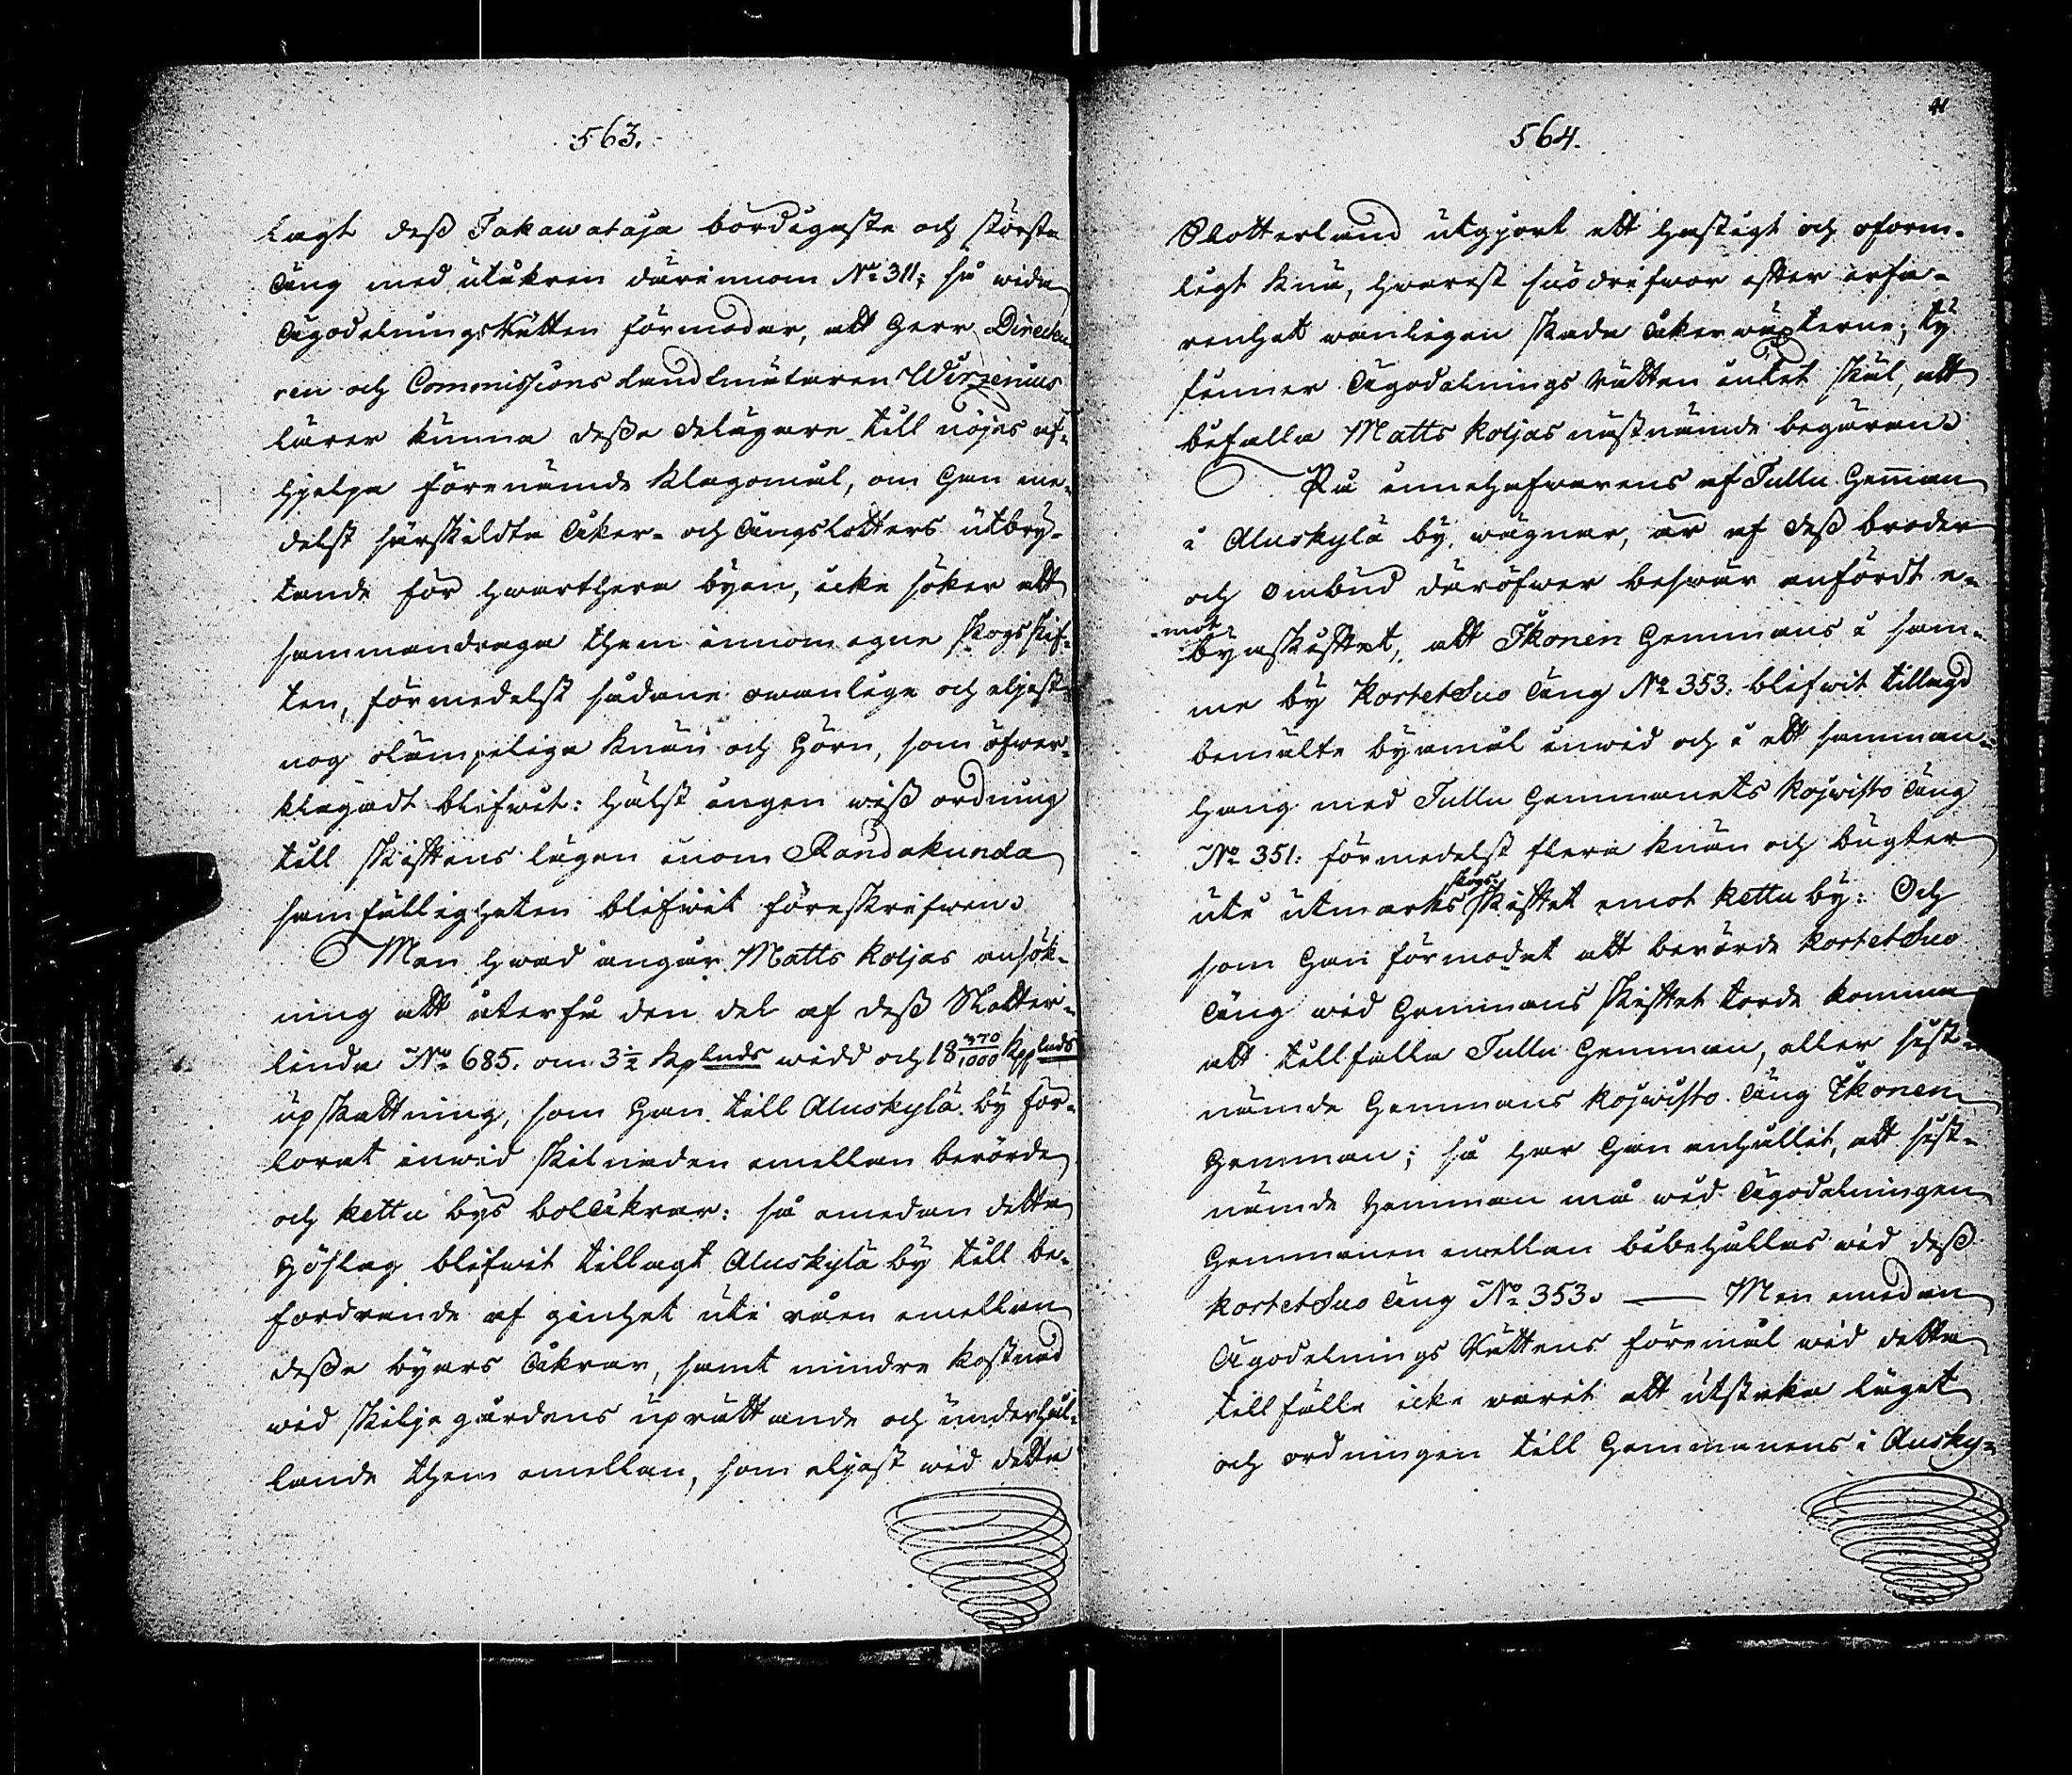 563.
lagt dess Takawataja bördigaste och största
Äng med utåkren därinnom No 311; så wida
ÄgodelningsRätten förmodar, att Herr Directeu-
ren och Commissions Landtmätaren Wirzenius
lärer kunna desse delägare till nöjes af-
hjelpa förenämde klagomål, om han me-
delst särskildte Åker- och Ängslotters utbry-
tande för hwarthera byen, icke söker att
sammandraga them innom egne skogsskif-
ten, förmedelst sådane owanlige och eljest
nog olämpelige knän och hörn, som öfwer-
klagadt blifwit: hälst ingen wiss ordning
till skiftens lägen inom Randakunda
samfälligheten blifwit föreskrifwen.
Men hwad angår Matts Koljas ansök-
ning att återfå den del af dess Slotter-
linda No 685. om 3 1/2 kplnds widd och 18 370/1000 kpplnds
upskattning, som han till Aluskylä by för-
lorat inwid skilnaden emellan berörde
och Kettu bys bolåkrar: så emedan detta
höslag blifwit tillagt Aluskylä by till be-
fordrande af ginhet uti råen emellan
desse byars Åkrar, samt mindre kostnad
wid skiljegårdens uprättande och underhål-
lande them emellan, som eljest wid detta
564.
Slotterland utgjort ett hastigt och oform-
ligt knä, hwarest snödrifwor efter erfa-
renhet wanligen skada åkerwäxterne; ty
finner Ägodelnings Rätten intet skäl, att
bifalla Matts Koljas nästnämde begäran.
På innehafwarens af Tullu Hemman
i Aluskylä by, wägnar, är af dess broder
och ombud däröfwer beswär anfördt e-
-mot
byaskiftet, att Ikonen Hemmans i sam-
me by KortetSuo Äng No 353. blifwit tillagd
bemälte byamål inwid och i ett samman-
hang med Tullu Hemmanets Kojwisto Äng
No 351. förmedelst flera knän och bugter
skogs-
uti utmarks skiftet emot Kettu by: Och
som han förmodat att berörde KortetSuo
Äng wid Hemmans skiftet torde komma
att tillfalla Tullu Hemman, eller sist-
nämde Hemmans Kojwisto Äng Ikonen
Hemman; så har han anhållit, att sist-
nämde Hemman må wid Ägodelningen
Hemmanen emellan bibehållas wid dess
KortetSuo Äng No 353. — Men emedan
Ägodelnings Rättens föremål wid detta
tillfälle icke warit att utstaka läget
och ordningen till Hemmanens i Ausky-